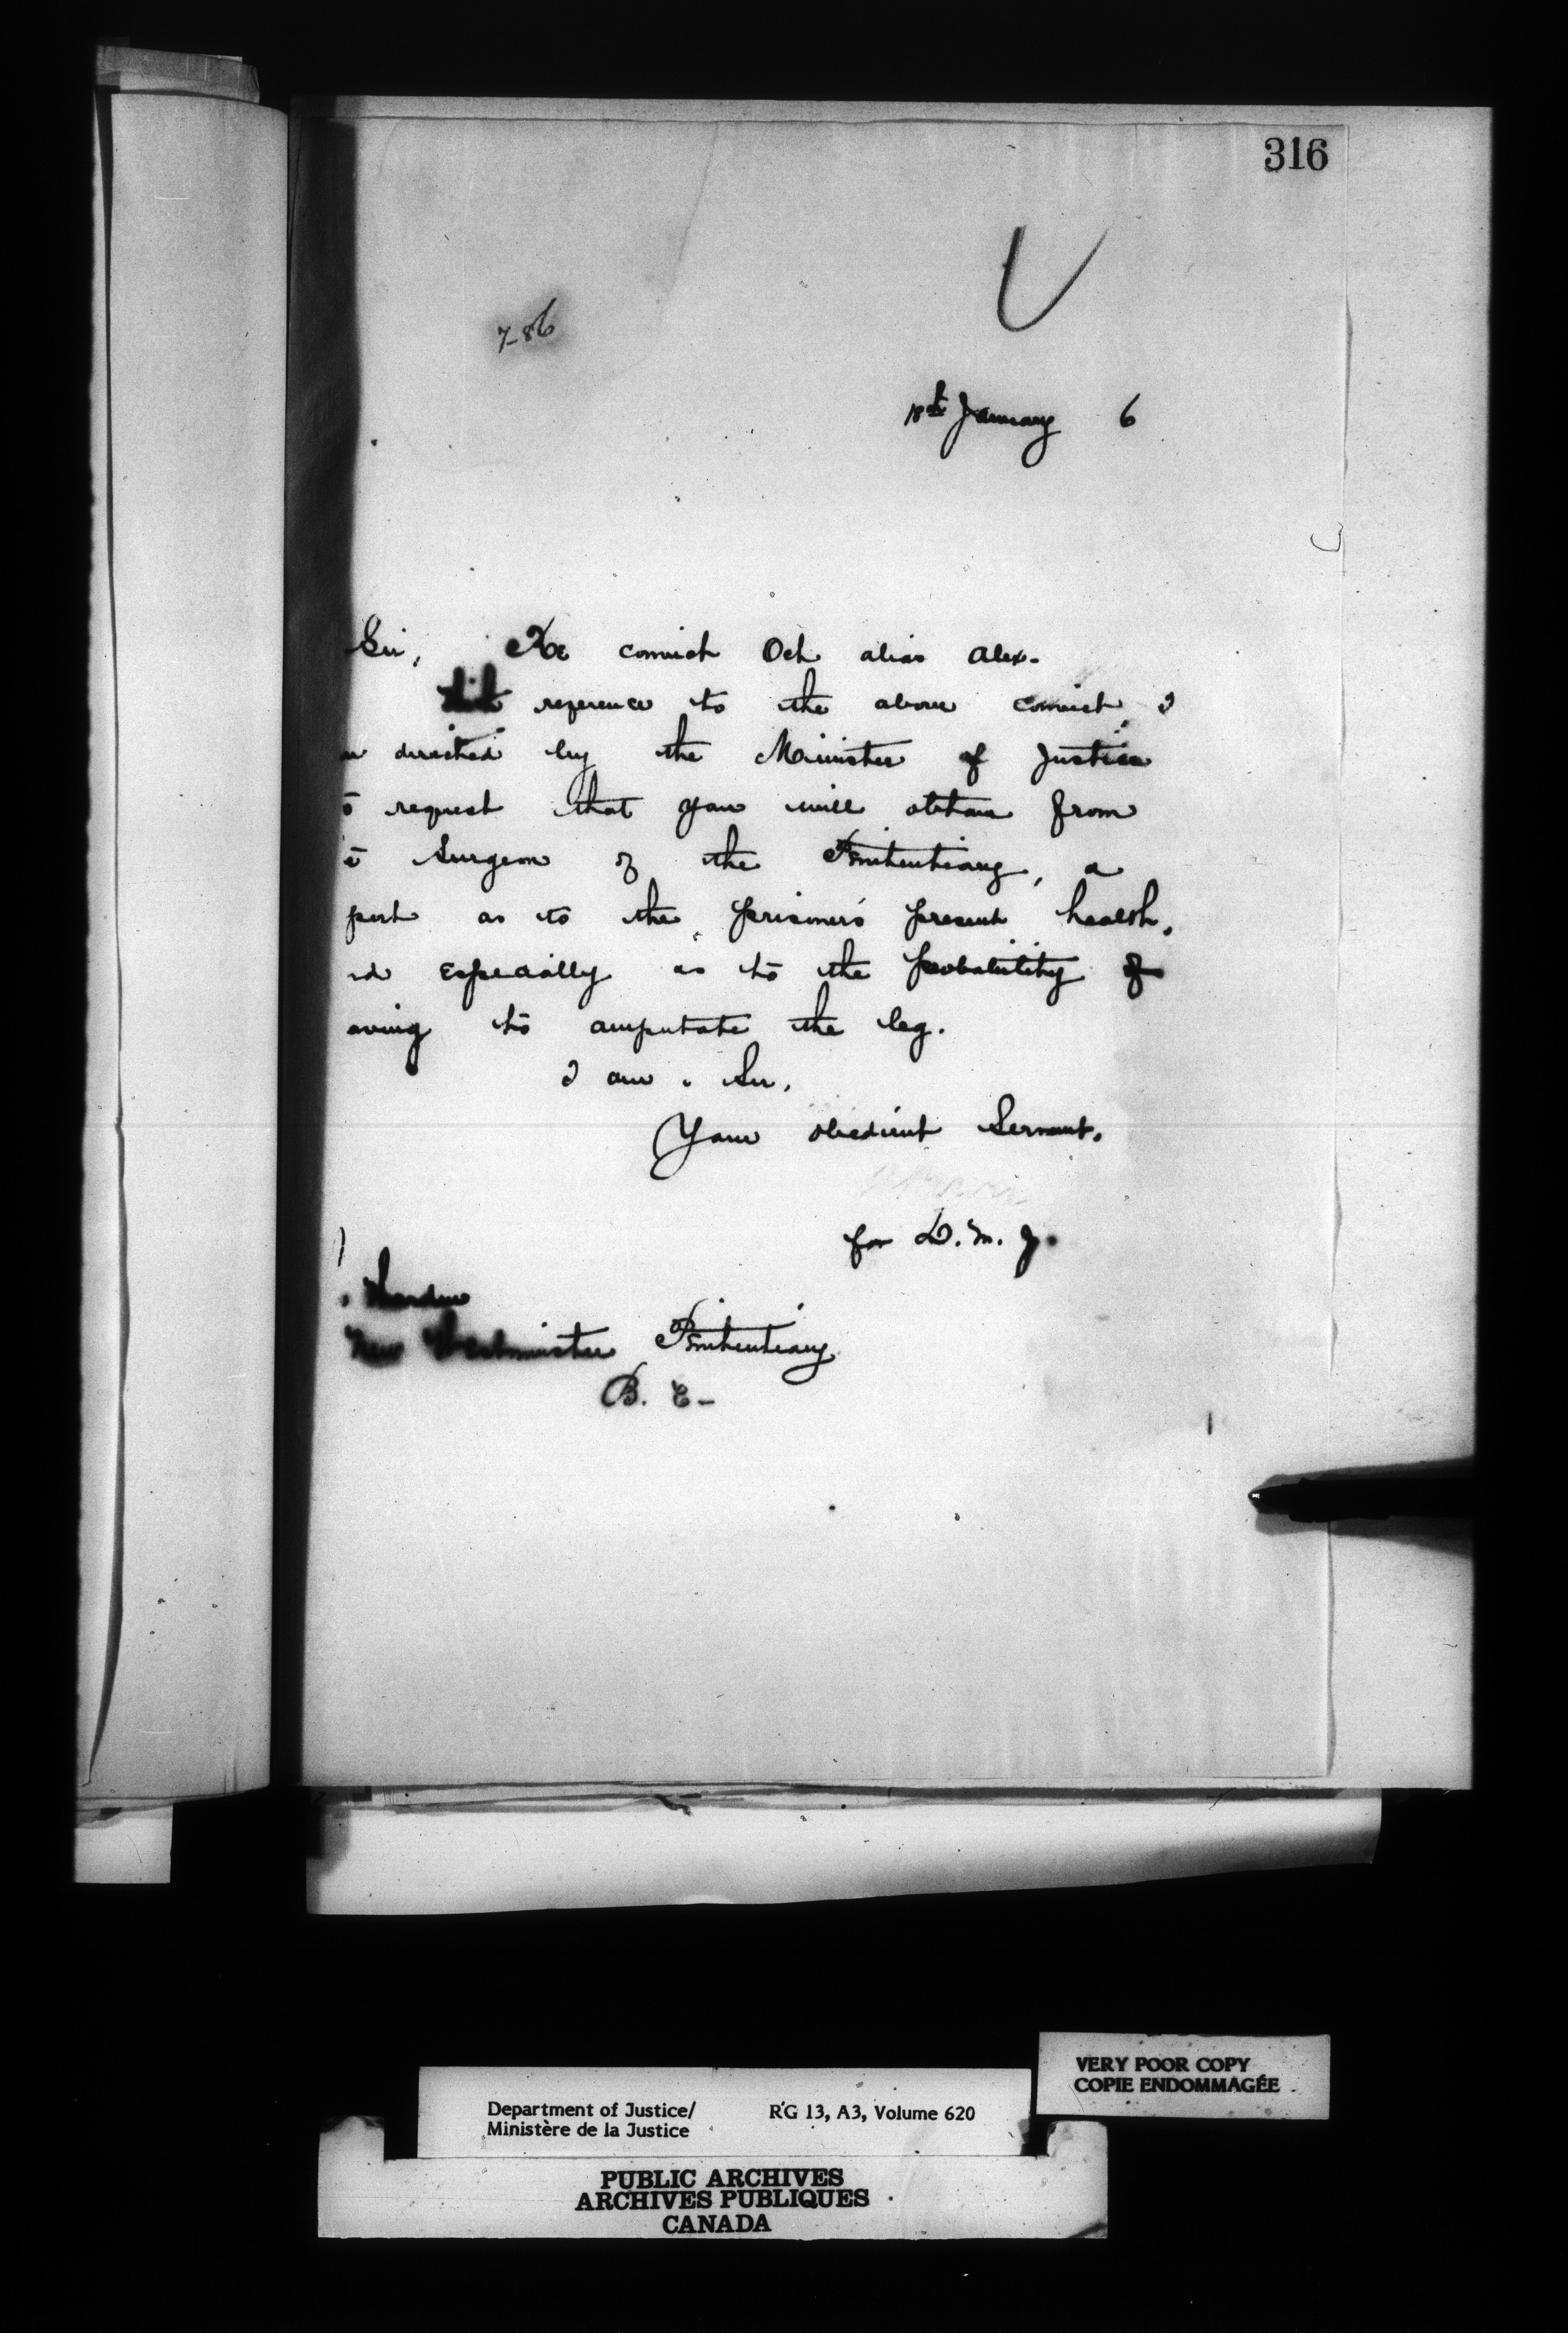 316
7-86
18th January 6
Sir, Re convict Och alias Alex-
With reference to the above convict, I
directed by the Minister of Justice
request that you will obtain from
Surgeon of the Penitentiary, a
port as to the prisoner's present health,
nd especially as to the probability of
aving to amputate the leg.
I am, Sir,
Your obedient Servant,
for D. M. J.
Warden
New Westminster Penitentiary
B. C-
VERY POOR COPY
COPIE ENDOMMAGÉE
Department of Justice/ RG 13, A3, Volume 620
Ministère de la Justice
PUBLIC ARCHIVES
ARCHIVES PUBLIQUES
CANADA